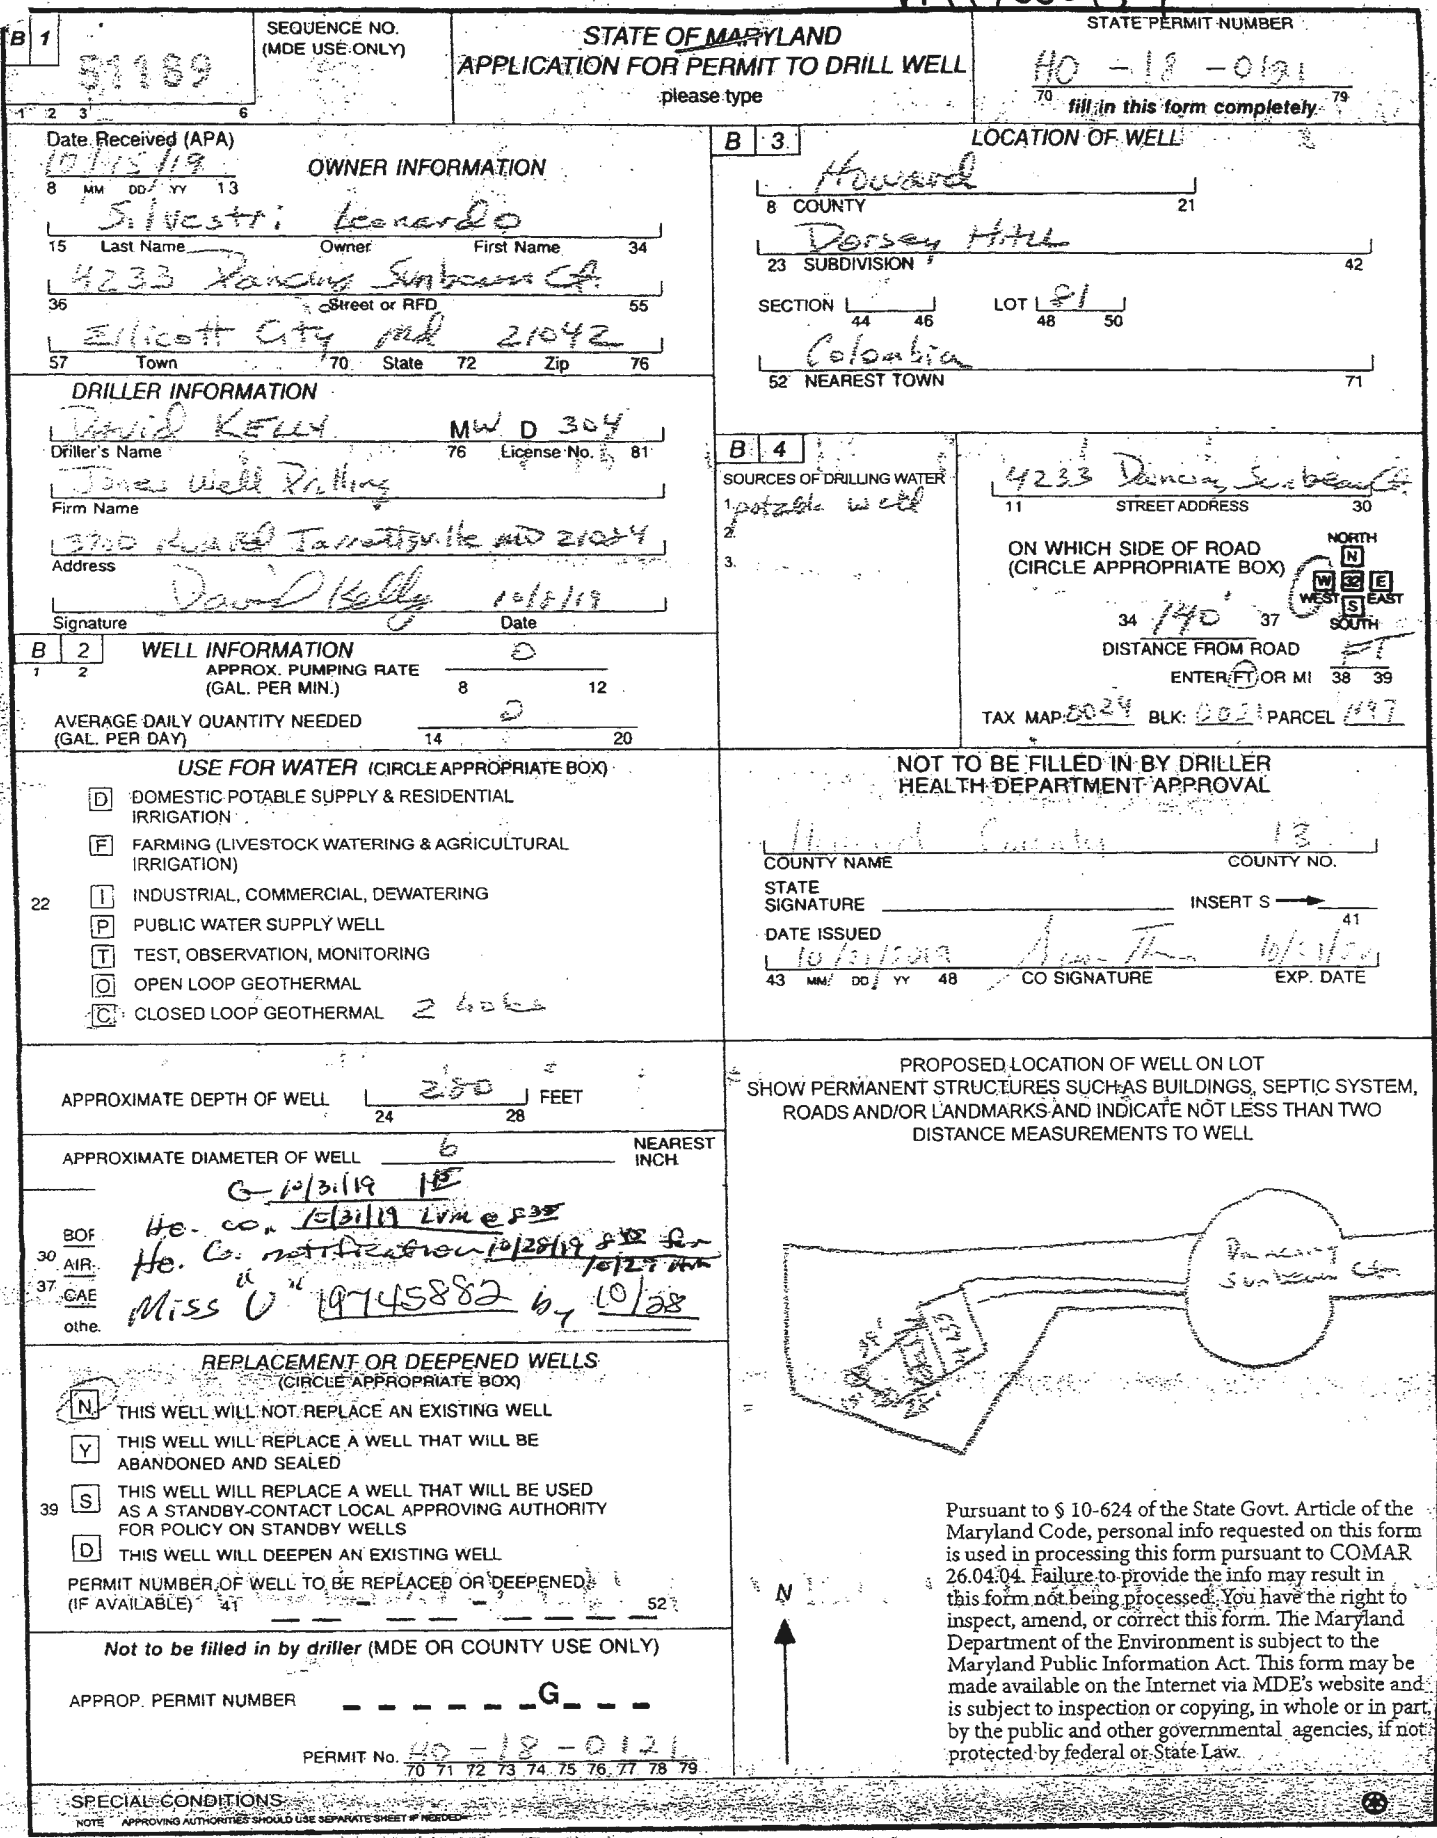 B 1
51189
1 2 3 6
SEQUENCE NO.
(MDE USE ONLY)
STATE OF MARYLAND
APPLICATION FOR PERMIT TO DRILL WELL
please type
STATE PERMIT NUMBER
HO - 18 - 0121
70 fill in this form completely 79
Date Received (APA)
10/15/19
8 MM DD YY 13
OWNER INFORMATION
Silvestri Leonardo
15 Last Name Owner First Name 34
4233 Dancing Sunbeam Ct.
36 Street or RFD 55
Ellicott City Md 21042
57 Town 70 State 72 Zip 76
DRILLER INFORMATION
David KELLY MW D 304
Driller's Name 76 License No. 81
Jones Well Drilling
Firm Name
Rd Jarrettsville MD 21084
Address
David Kelly 10/8/19
Signature Date
B 2 WELL INFORMATION
1 2
APPROX. PUMPING RATE 0
(GAL. PER MIN.) 8 12
AVERAGE DAILY QUANTITY NEEDED 0
(GAL. PER DAY) 14 20
USE FOR WATER (CIRCLE APPROPRIATE BOX)
D DOMESTIC POTABLE SUPPLY & RESIDENTIAL
IRRIGATION
F FARMING (LIVESTOCK WATERING & AGRICULTURAL
IRRIGATION)
22 I INDUSTRIAL, COMMERCIAL, DEWATERING
P PUBLIC WATER SUPPLY WELL
T TEST, OBSERVATION, MONITORING
O OPEN LOOP GEOTHERMAL
C CLOSED LOOP GEOTHERMAL 2 holes
APPROXIMATE DEPTH OF WELL 280 FEET
24 28
APPROXIMATE DIAMETER OF WELL 6 NEAREST
INCH
G- 10/31/19
Ho. Co. 10/31/19 LVM @ 835
Ho. Co. notification 10/28/19 for
Miss "U" 19745882 by 10/28
BOF
30 AIR
37 CAE
othe.
REPLACEMENT OR DEEPENED WELLS
(CIRCLE APPROPRIATE BOX)
N THIS WELL WILL NOT REPLACE AN EXISTING WELL
Y THIS WELL WILL REPLACE A WELL THAT WILL BE
ABANDONED AND SEALED
39 S THIS WELL WILL REPLACE A WELL THAT WILL BE USED
AS A STANDBY-CONTACT LOCAL APPROVING AUTHORITY
FOR POLICY ON STANDBY WELLS
D THIS WELL WILL DEEPEN AN EXISTING WELL
PERMIT NUMBER OF WELL TO BE REPLACED OR DEEPENED
(IF AVAILABLE) 41 - - 52
Not to be filled in by driller (MDE OR COUNTY USE ONLY)
APPROP. PERMIT NUMBER G
PERMIT No. HO - 18 - 0121
70 71 72 73 74 75 76 77 78 79
B 3 LOCATION OF WELL
Howard
8 COUNTY 21
Dorsey Hall
23 SUBDIVISION 42
SECTION LOT 81
44 46 48 50
Colombia
52 NEAREST TOWN 71
B 4
SOURCES OF DRILLING WATER
1. potable well
2.
3.
4233 Dancing Sunbeam Ct.
11 STREET ADDRESS 30
ON WHICH SIDE OF ROAD
(CIRCLE APPROPRIATE BOX)
NORTH
N
W 32 E
WEST EAST
S
SOUTH
34 140' 37
DISTANCE FROM ROAD
FT
ENTER FT OR MI 38 39
TAX MAP: 0024 BLK: 0021 PARCEL 1197
NOT TO BE FILLED IN BY DRILLER
HEALTH DEPARTMENT APPROVAL
Howard County 13
COUNTY NAME COUNTY NO.
STATE
SIGNATURE INSERT S
41
DATE ISSUED
10/21/2019
43 MM DD YY 48 CO SIGNATURE EXP. DATE
PROPOSED LOCATION OF WELL ON LOT
SHOW PERMANENT STRUCTURES SUCH AS BUILDINGS, SEPTIC SYSTEM,
ROADS AND/OR LANDMARKS AND INDICATE NOT LESS THAN TWO
DISTANCE MEASUREMENTS TO WELL
Dancing
Sunbeam Ct.
4233
N
Pursuant to § 10-624 of the State Govt. Article of the
Maryland Code, personal info requested on this form
is used in processing this form pursuant to COMAR
26.04.04. Failure to provide the info may result in
this form not being processed. You have the right to
inspect, amend, or correct this form. The Maryland
Department of the Environment is subject to the
Maryland Public Information Act. This form may be
made available on the Internet via MDE's website and
is subject to inspection or copying, in whole or in part,
by the public and other governmental agencies, if not
protected by federal or State Law.
SPECIAL CONDITIONS
NOTE APPROVING AUTHORITIES SHOULD USE SEPARATE SHEET IF NEEDED